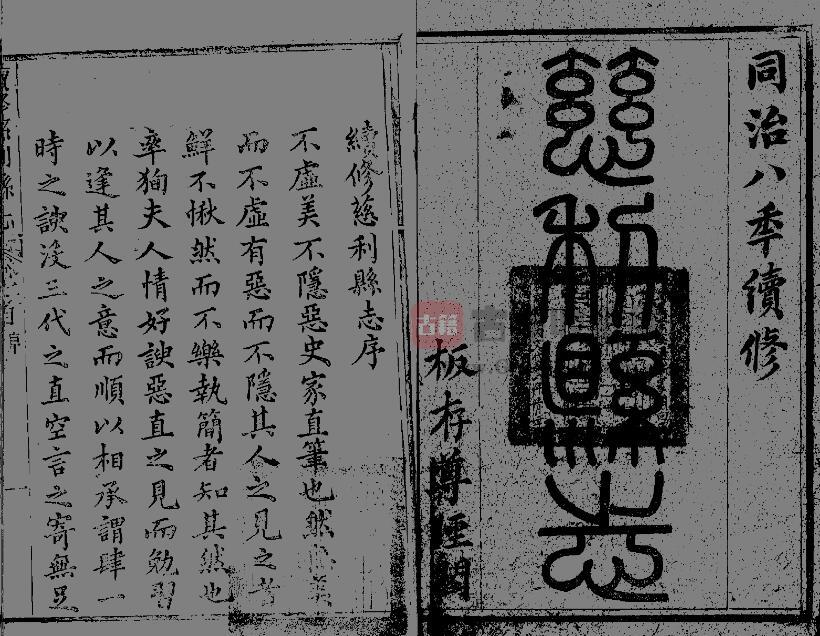 同治八年續修
慈利縣志
板存尊經閣
續修慈利縣志序
不虛美不隱惡史家直筆也然
而不虛有惡而不隱其人之見之者
鮮不愀然而不樂執簡者知其然也
率狥夫人情好諛惡直之見而勉習
以逢其人之意而順以相承謂肆一
時之諛沒三代之直空言之寄無足
古籍